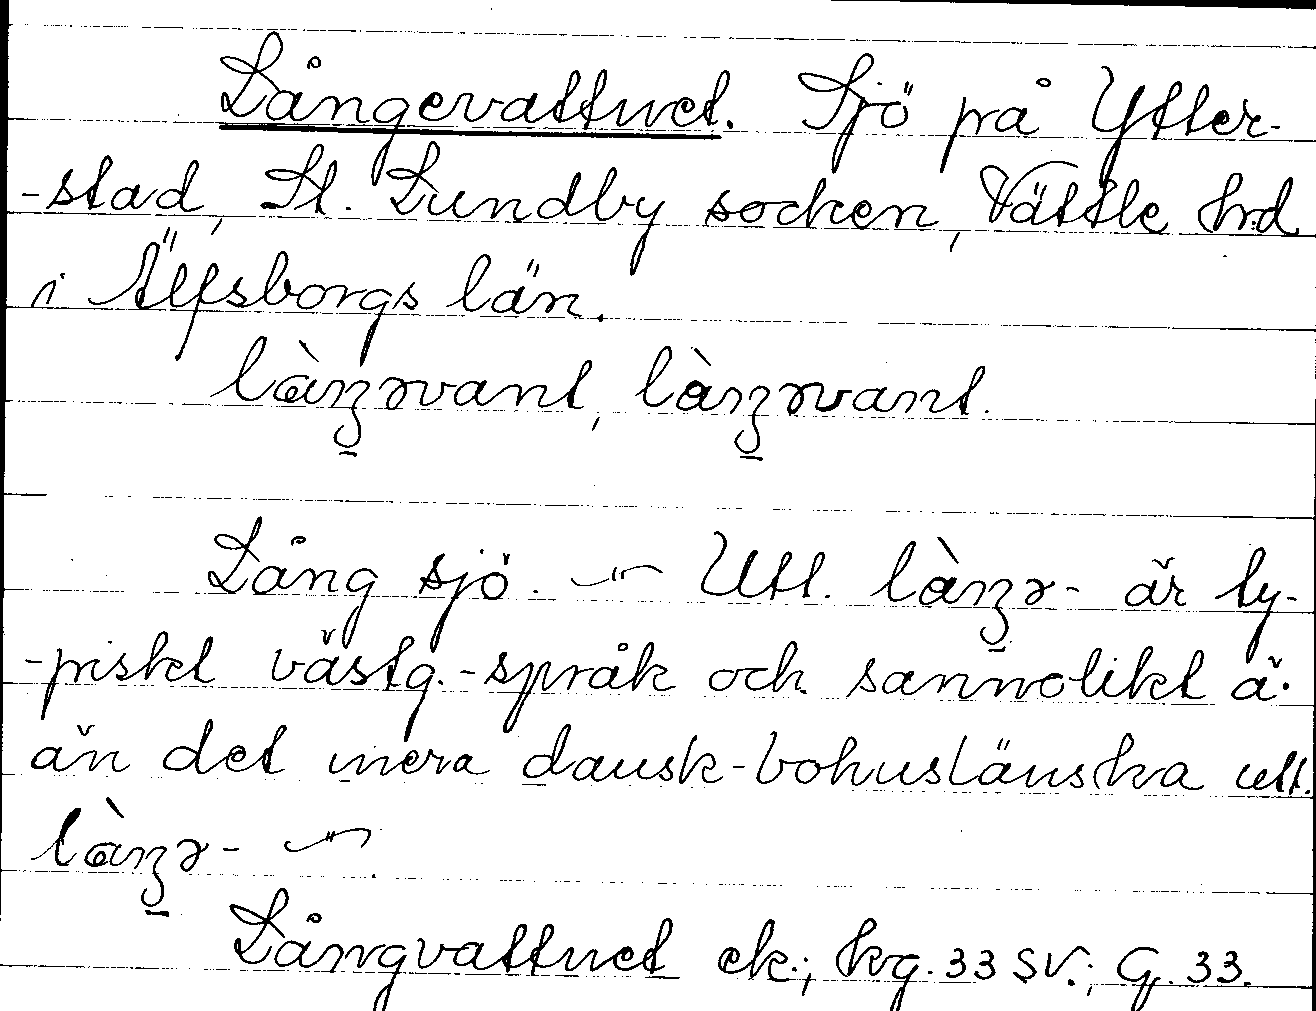 Långevattnet. Sjö på Ytter-
-stad, St. Lundby socken, Vättle hrd
i Älfsborgs län.
làŋərvant, làŋərvant.
Lång sjö. — Utt. làŋə- är ty-
-piskt västg.-språk och sannolikt ä.
än det mera dansk-bohuslänska utt.
làŋə- —.
Långvattnet ek.; kg. 33 SV.; G. 33.